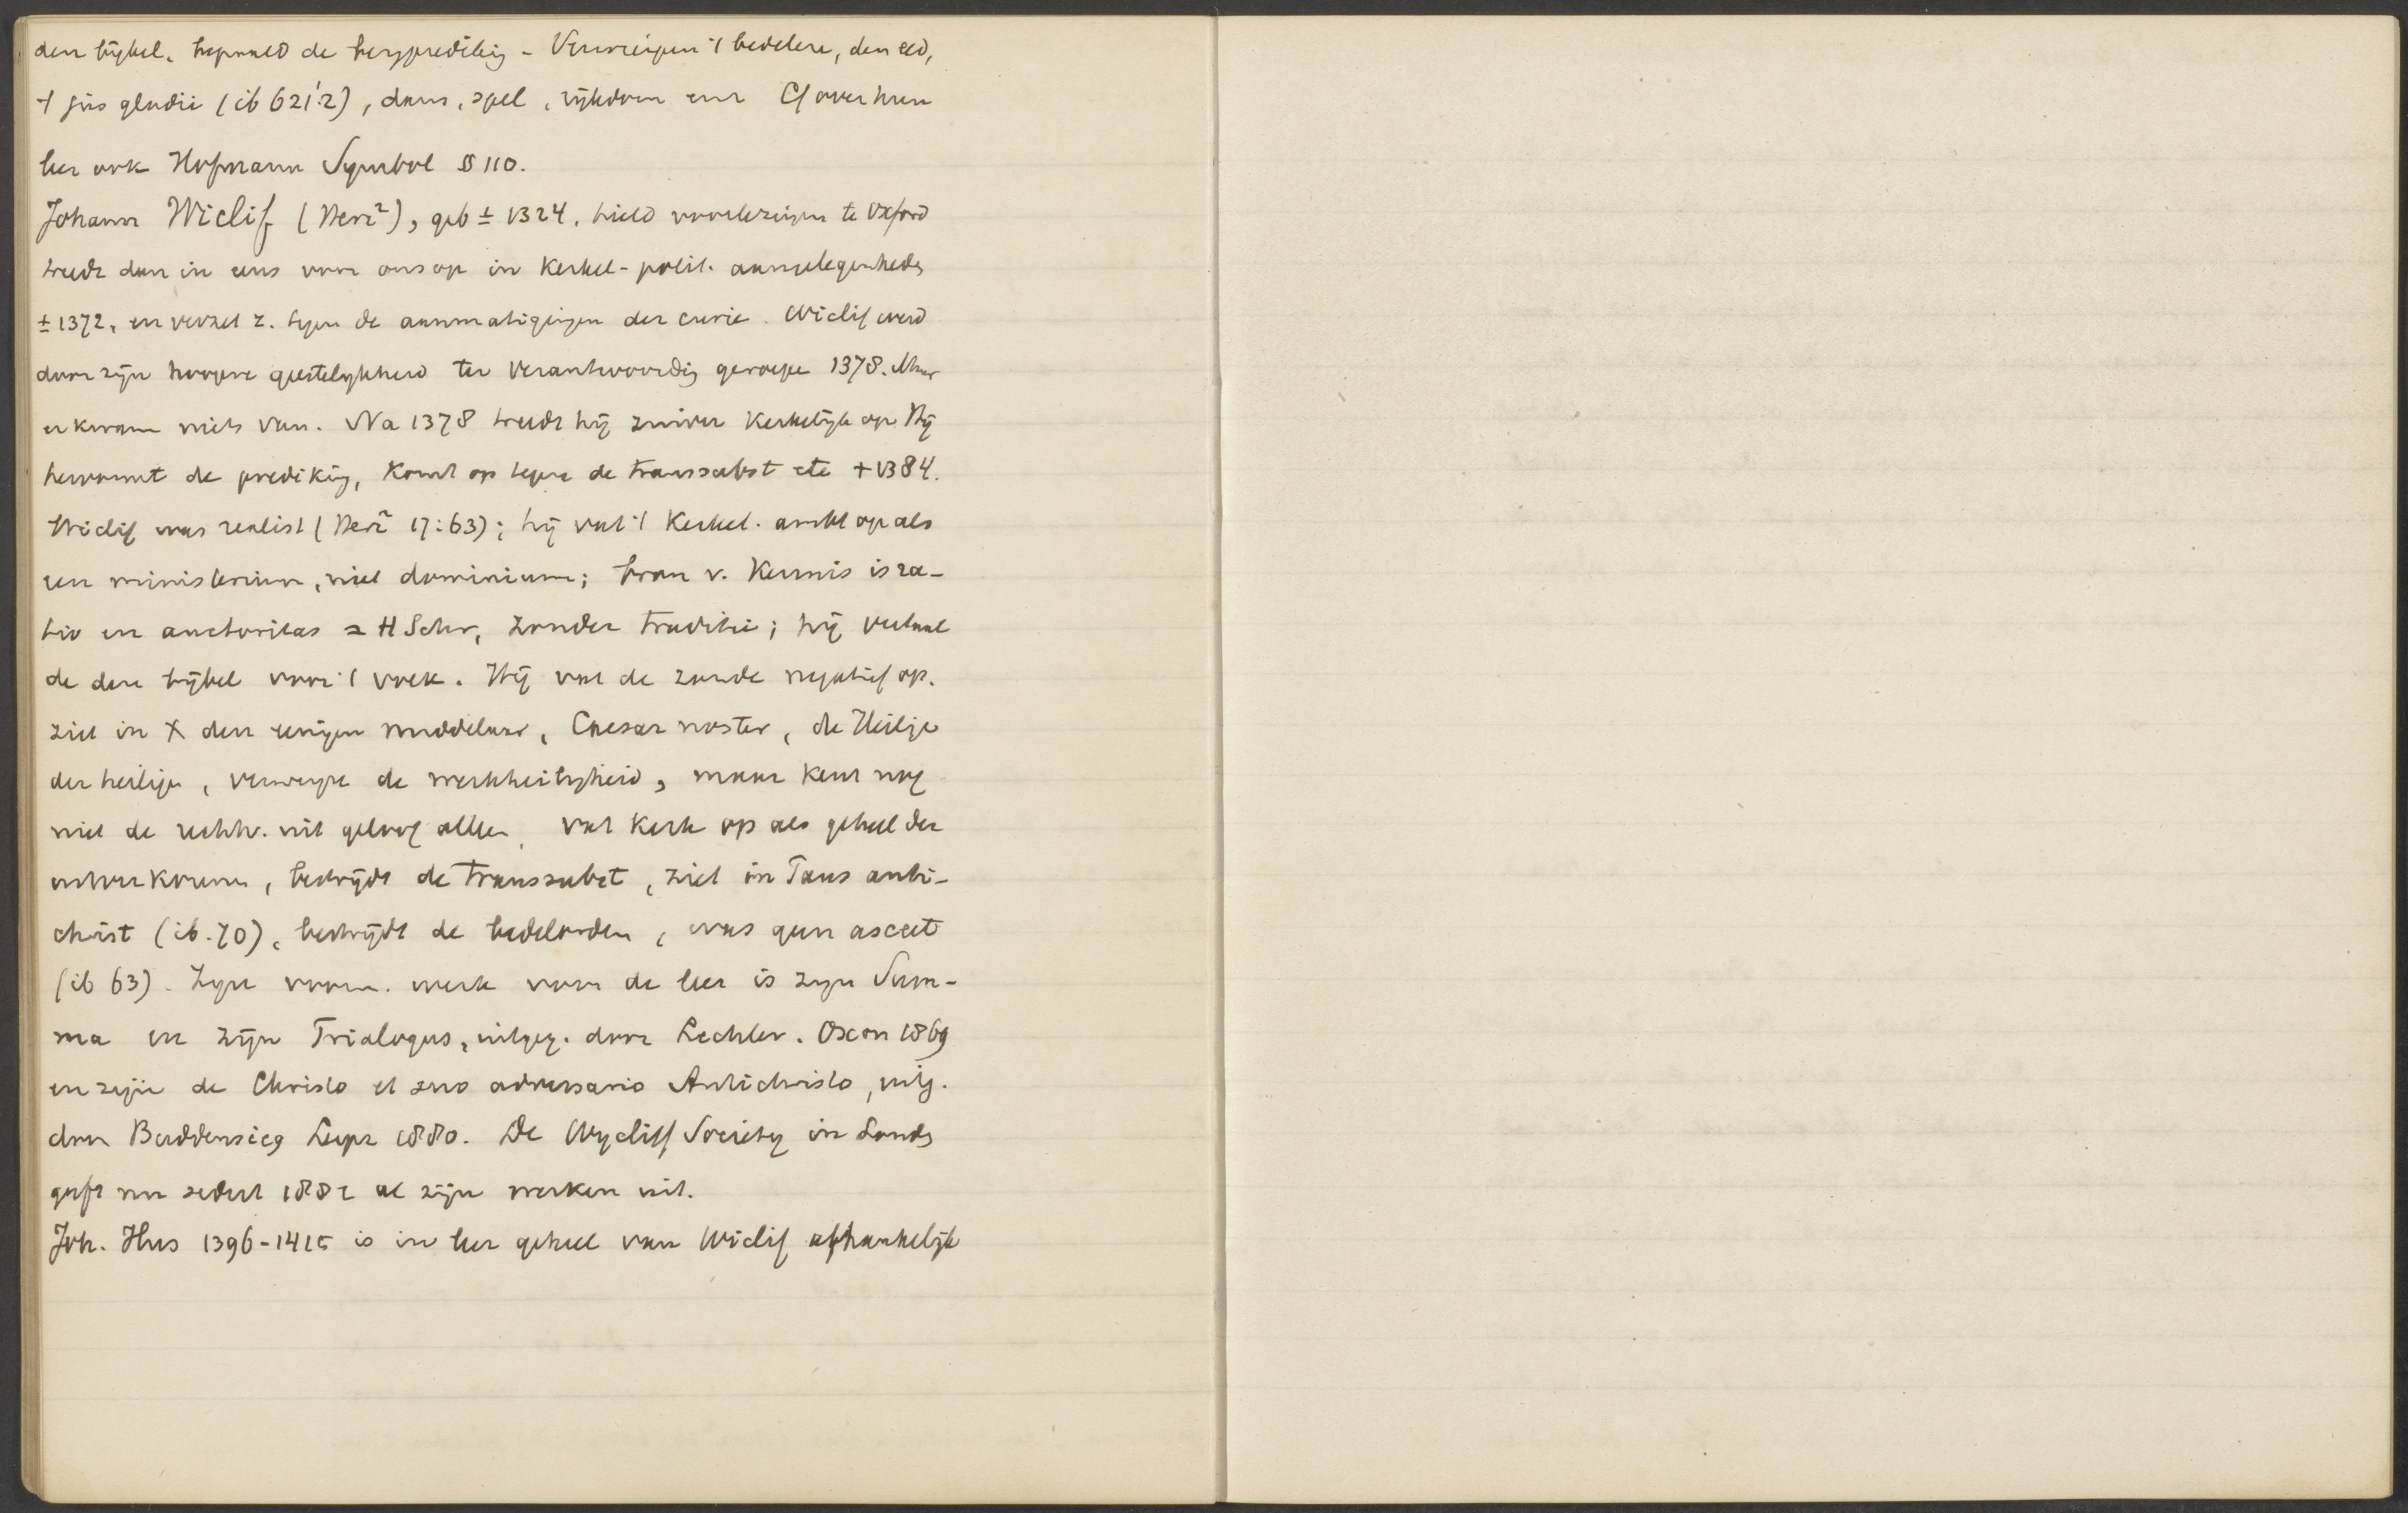 den bijbel, bepaald de bergpredikig - Verwerpen 't bedelen, den eed,
't jus gladii (ib 621.2), dans, spel, rijkdom enz Cf over hun
leer ook Hofmann Symbol § 110.
Johann Wiclif (Herz²), geb ± 1324. hield voorlezingen te Oxford
treedt dan in eens voor ons op in Kerkel-polit. aangelegenheden
± 1372, en verzet z. tegen de aanmatigingen der curie. Wiclif werd
door zijn hoogere geestelijkheid ter verantwoordig geroepen 1378. Maar
er kwam niets van. Na 1378 treedt hij zuiver Kerkelijk op Hij
hervormt de predikig, Komt op tegen de transsubst etc + 1384.
Wiclif was realist (Herz² 17:63); hij vat 't Kerkel. ambt op als
een ministerium, niet dominium; bron v. Kennis is ra-
tio en auctoritas = H Schr, zonder traditie; hij vertaal
de den bijbel voor 't volk. Hij vat de zonde negatief op.
ziet in X den eenigen middelaar, Caesar noster, de Heilige
der heiligen, verwerpt de werkheiligheid, maar kent nog
niet de rechtv. uit geloof alleen, vat Kerk op als geheel der
uitverkorenen, bestrijdt de transsubst, ziet in Paus anti-
christ (ib. 70), bestrijdt de bedelorden, was geen asceet
(ib 63). Zijn voorn. werk voor de leer is zijn Sum-
ma en zijn Trialogus, uitgeg. door Lechler. Oxon 1869
en zijn de Christo et suo adversario Antichristo, uitg.
door Buddensieg Leipz 1880. De Wycliff Society in Londen
geeft nu sedert 1882 al zijn werken uit.
Joh. Hus 1396-1415 is in leer geheel van Wiclif afhankelijk